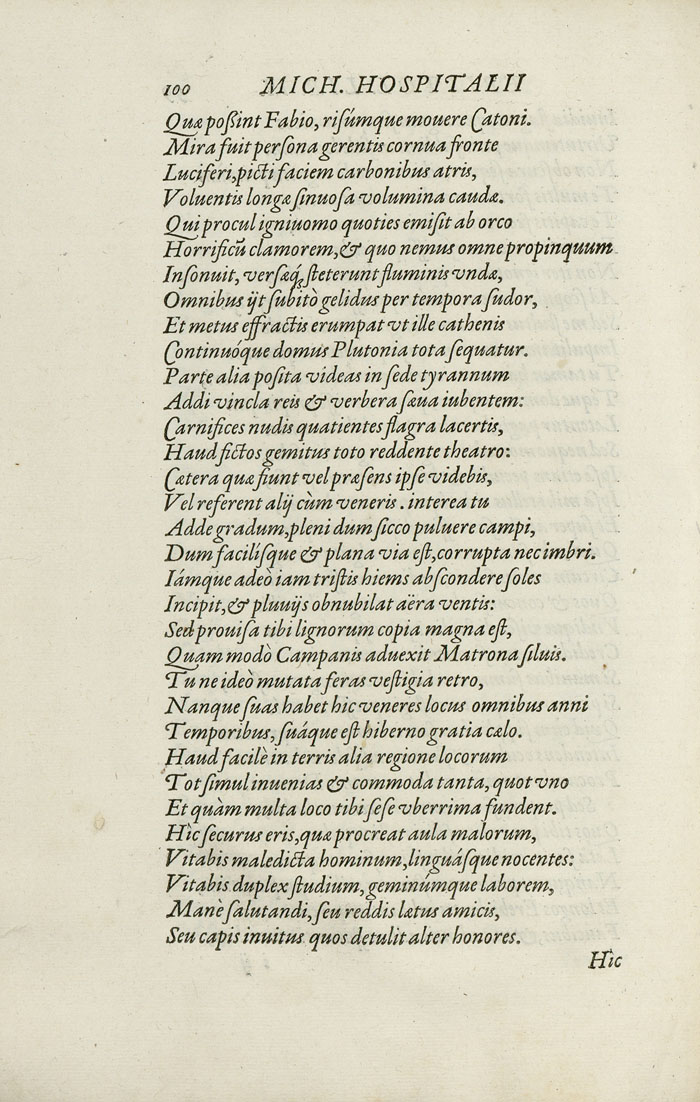 100 MICH. HOSPITALII
Quæ poßint Fabio, riſúmque mouere Catoni.
Mira fuit perſona gerentis cornua fronte
Luciferi, picti faciem carbonibus atris,
Voluentis longæ ſinuoſa volumina caudæ.
Qui procul igniuomo quoties emiſit ab orco
Horrificũ clamorem, & quo nemus omne propinquum
Inſonuit, verſæq́; ſteterunt fluminis vndæ,
Omnibus ijt ſubitò gelidus per tempora ſudor,
Et metus effractis erumpat vt ille cathenis
Continuóque domus Plutonia tota ſequatur.
Parte alia poſita videas in ſede tyrannum
Addi vincla reis & verbera ſæua iubentem:
Carnifices nudis quatientes flagra lacertis,
Haud fictos gemitus toto reddente theatro:
Cætera quæ fiunt vel præſens ipſe videbis,
Vel referent alij cùm veneris. interea tu
Adde gradum, pleni dum ſicco puluere campi,
Dum faciliſque & plana via eſt, corrupta nec imbri.
Iámque adeò iam triſtis hiems abſcondere ſoles
Incipit, & pluuijs obnubilat aëra ventis:
Sed prouiſa tibi lignorum copia magna eſt,
Quam modò Campanis aduexit Matrona ſiluis.
Tu ne ideò mutata feras veſtigia retro,
Nanque ſuas habet hic veneres locus omnibus anni
Temporibus, ſuáque eſt hiberno gratia cælo.
Haud facilè in terris alia regione locorum
Tot ſimul inuenias & commoda tanta, quot vno
Et quàm multa loco tibi ſeſe vberrima fundent.
Hìc ſecurus eris, quæ procreat aula malorum,
Vitabis maledicta hominum, linguáſque nocentes:
Vitabis duplex ſtudium, geminúmque laborem,
Manè ſalutandi, ſeu reddis lætus amicis,
Seu capis inuitus quos detulit alter honores.
Hic